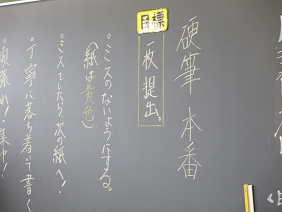 硬筆 本番
目標
一枚提出。
◦ミスのないようにする。
(紙は黄色)
◦ミスをしたら次の紙へ!
◦丁寧に落ち着いて書く
◦頑張れ!集中!